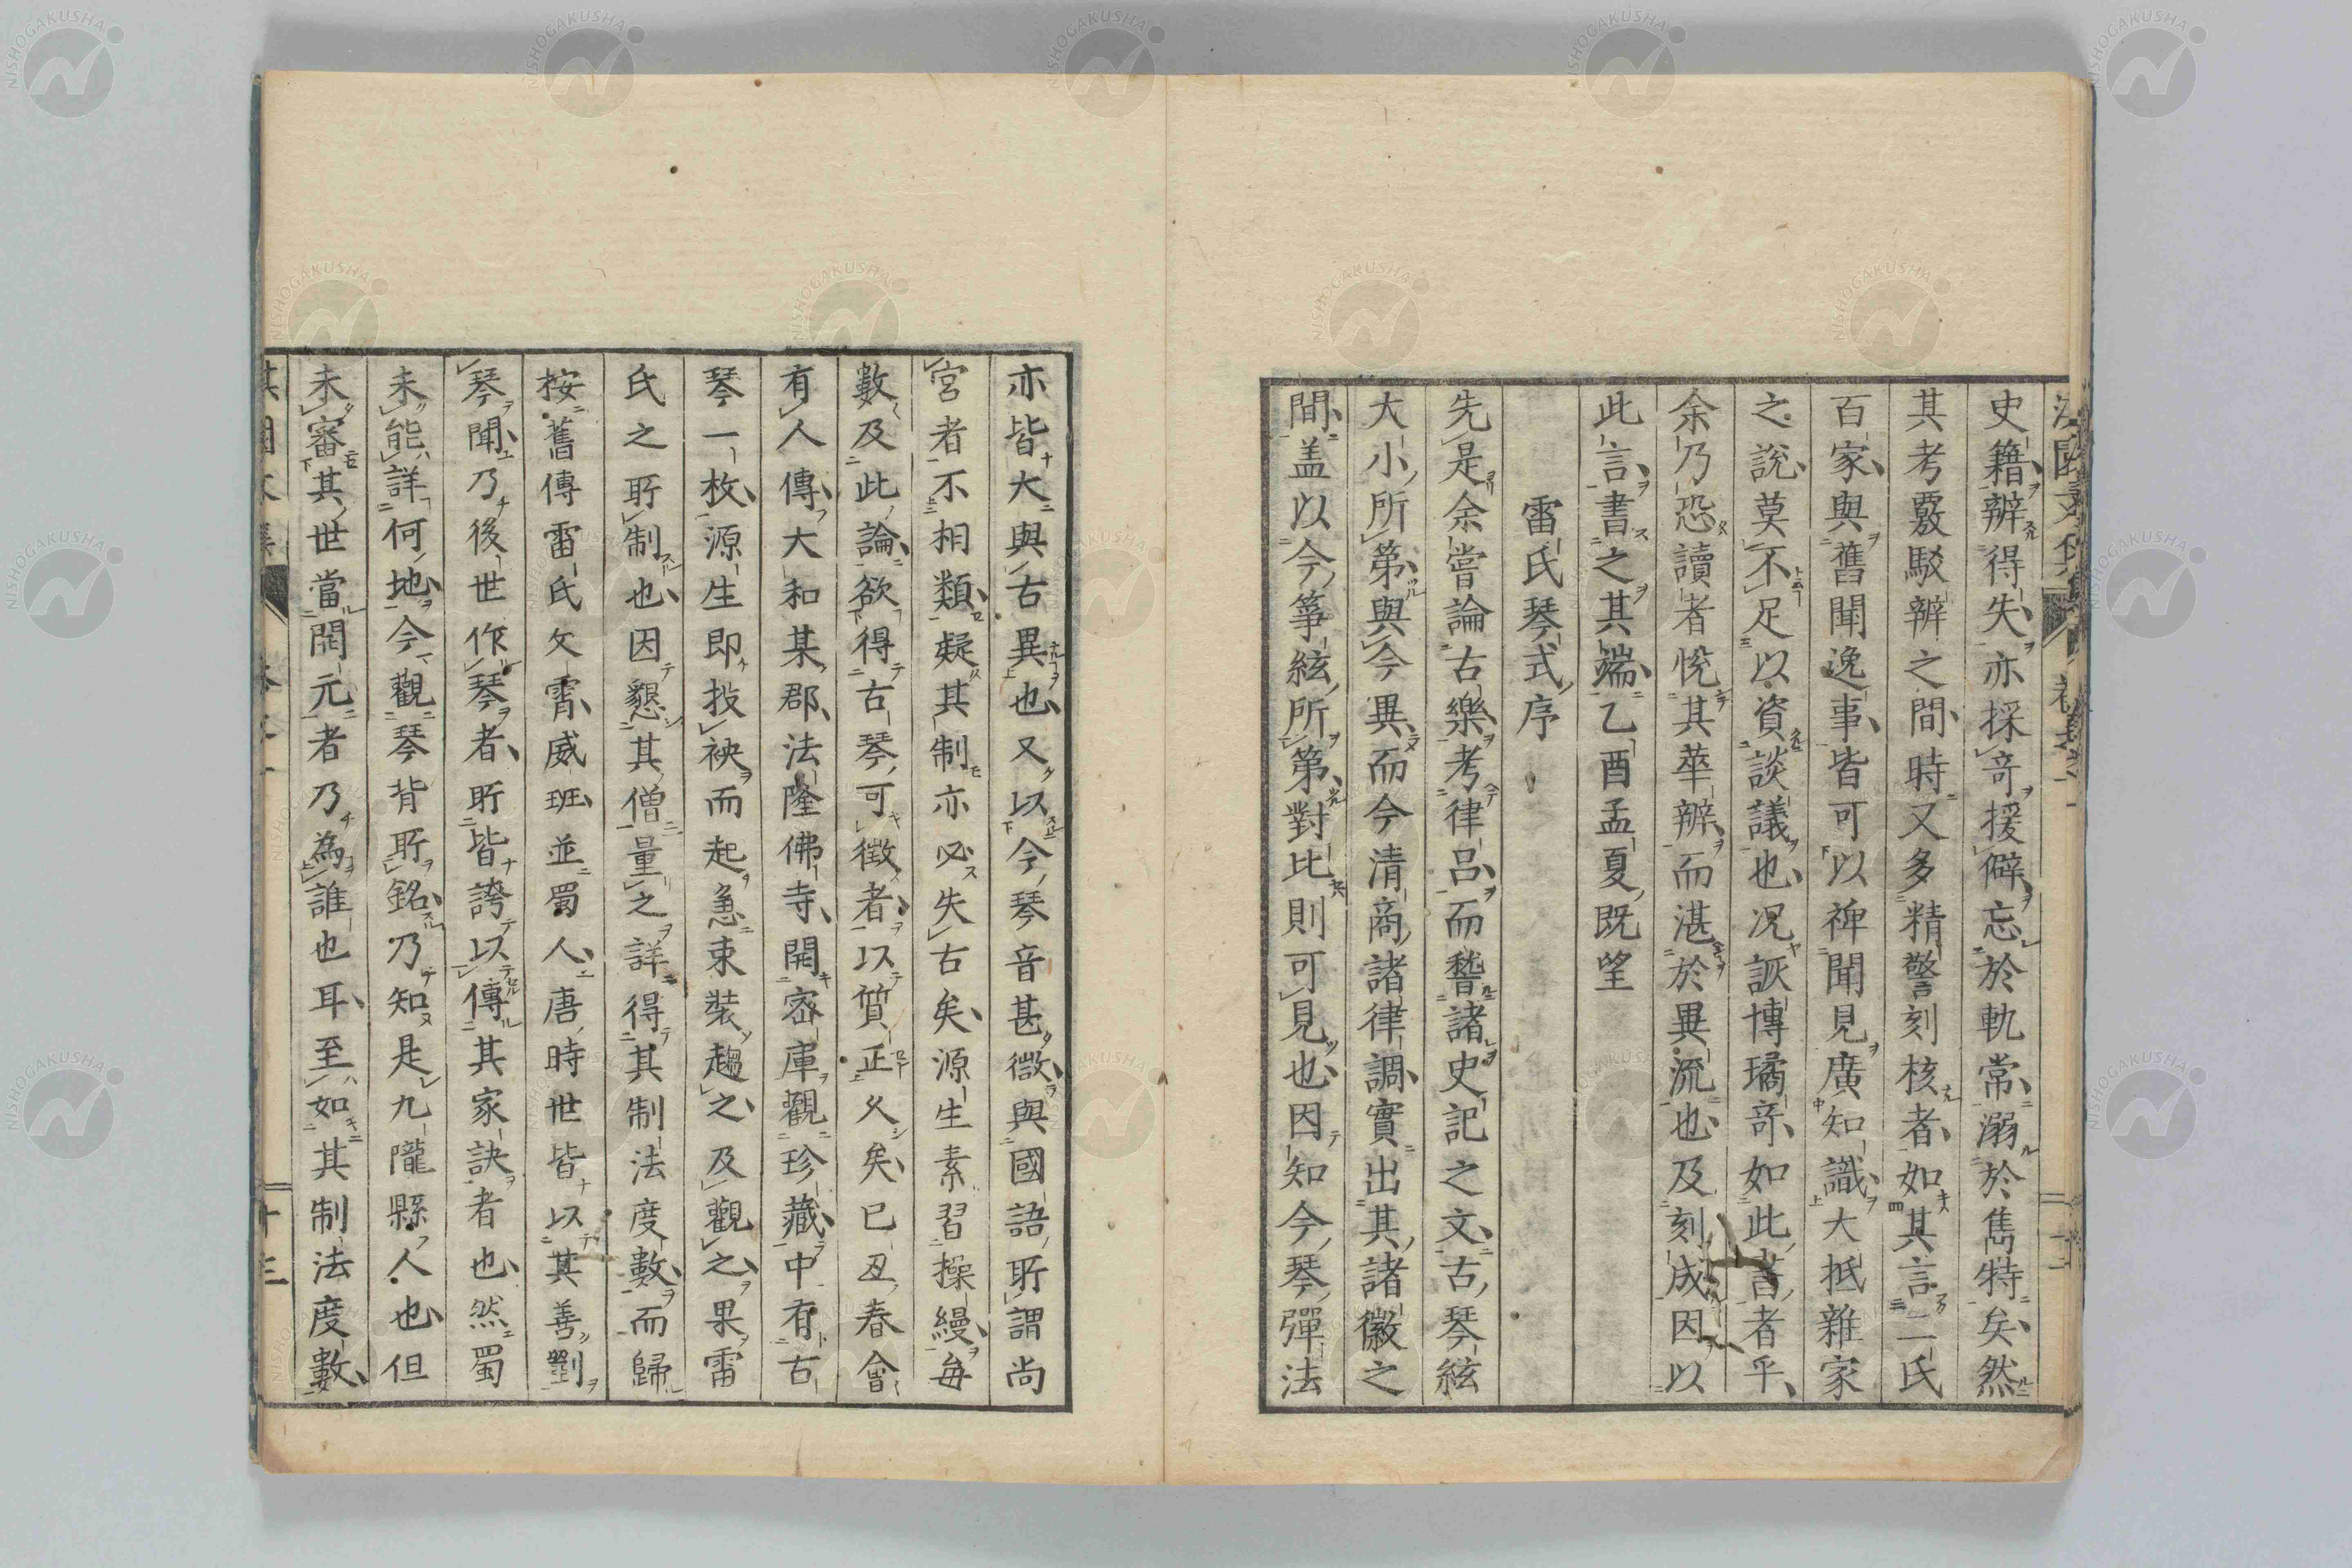 史籍辨得失亦採奇援僻忘於軌常溺於雋特矣然
其考覈駁辨之間時又多精警刻核者如其言二氏
百家與舊聞逸事皆可以裨聞見廣知識大抵雜家
之說莫不足以資談議也况詼博璚奇如此書者乎
余乃恐讀者悅其華辨而湛於異流也及刻成因以
此言書之其端乙酉孟夏既望
雷氏琴式序
先是余嘗論古樂考律呂而稽諸史記之文古琴絃
大小所第與今異而今清商諸律調實出其諸徽之
間盖以今箏絃所第對比則可見也因知今琴彈法
亦皆大與古異也又以今琴音甚微與國語所謂尚
宮者不相類疑其制亦必失古矣源生素習操縵每
數及此論欲得古琴可徵者以質正久矣已丑春會
有人傳大和某郡法隆佛寺開密庫觀珍藏中有古
琴一枚源生即投袂而起急束裝趨之及觀之果雷
氏之所制也因懇其僧量之詳得其制法度數而歸
按舊傳雷氏文霄威班並蜀人唐時世皆以其善劉
琴聞乃後世作琴者所皆誇以傳其家訣者也然蜀
未能詳何地今觀琴背所銘乃知是九隴縣人也但
未審其世當開元者乃為誰也耳至如其制法度數
十三